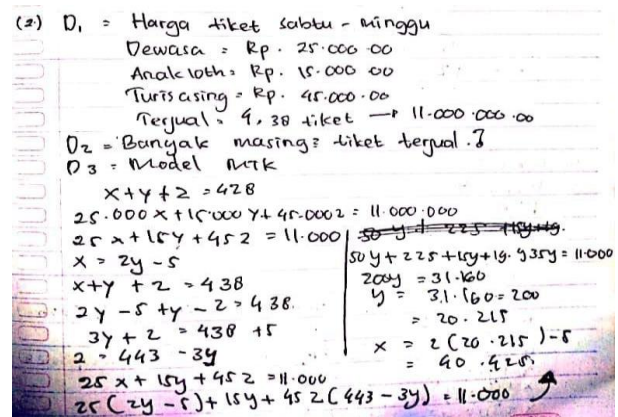 (2.) D₁ = Harga tiket sabtu - minggu
Dewasa = Rp. 25.000 00
Anak loth = Rp. 15.000 00
Turis asing = Rp. 45.000.00
Terjual = 4,38 tiket → 11.000.000.00
D₂ = Banyak masing² tiket terjual.?
D3 = Model MTK
x+y+z = 428
25.000 x + 15.000 y + 45.000z = 11.000.000
25x + 15y + 45z = 11.000
x = 2y - 5
x+y + z = 438
2y - 5 + y - z = 438.
3y + z = 438 + 5
z = 443 - 3y
25 x + 15y + 45z = 11.000
25(2y - 5) + 15y + 45z(443 - 3y) = 11.000
50y + 225 + 15y + 19.935y = 11.000
200y = 31.160
y = 31.160 = 200
= 20.215
x = 2(20.215) - 5
= 40.425.